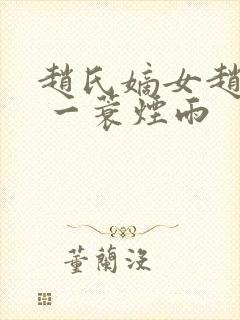 趙氏嫡女趙
一蓑煙雨
董蘭浚